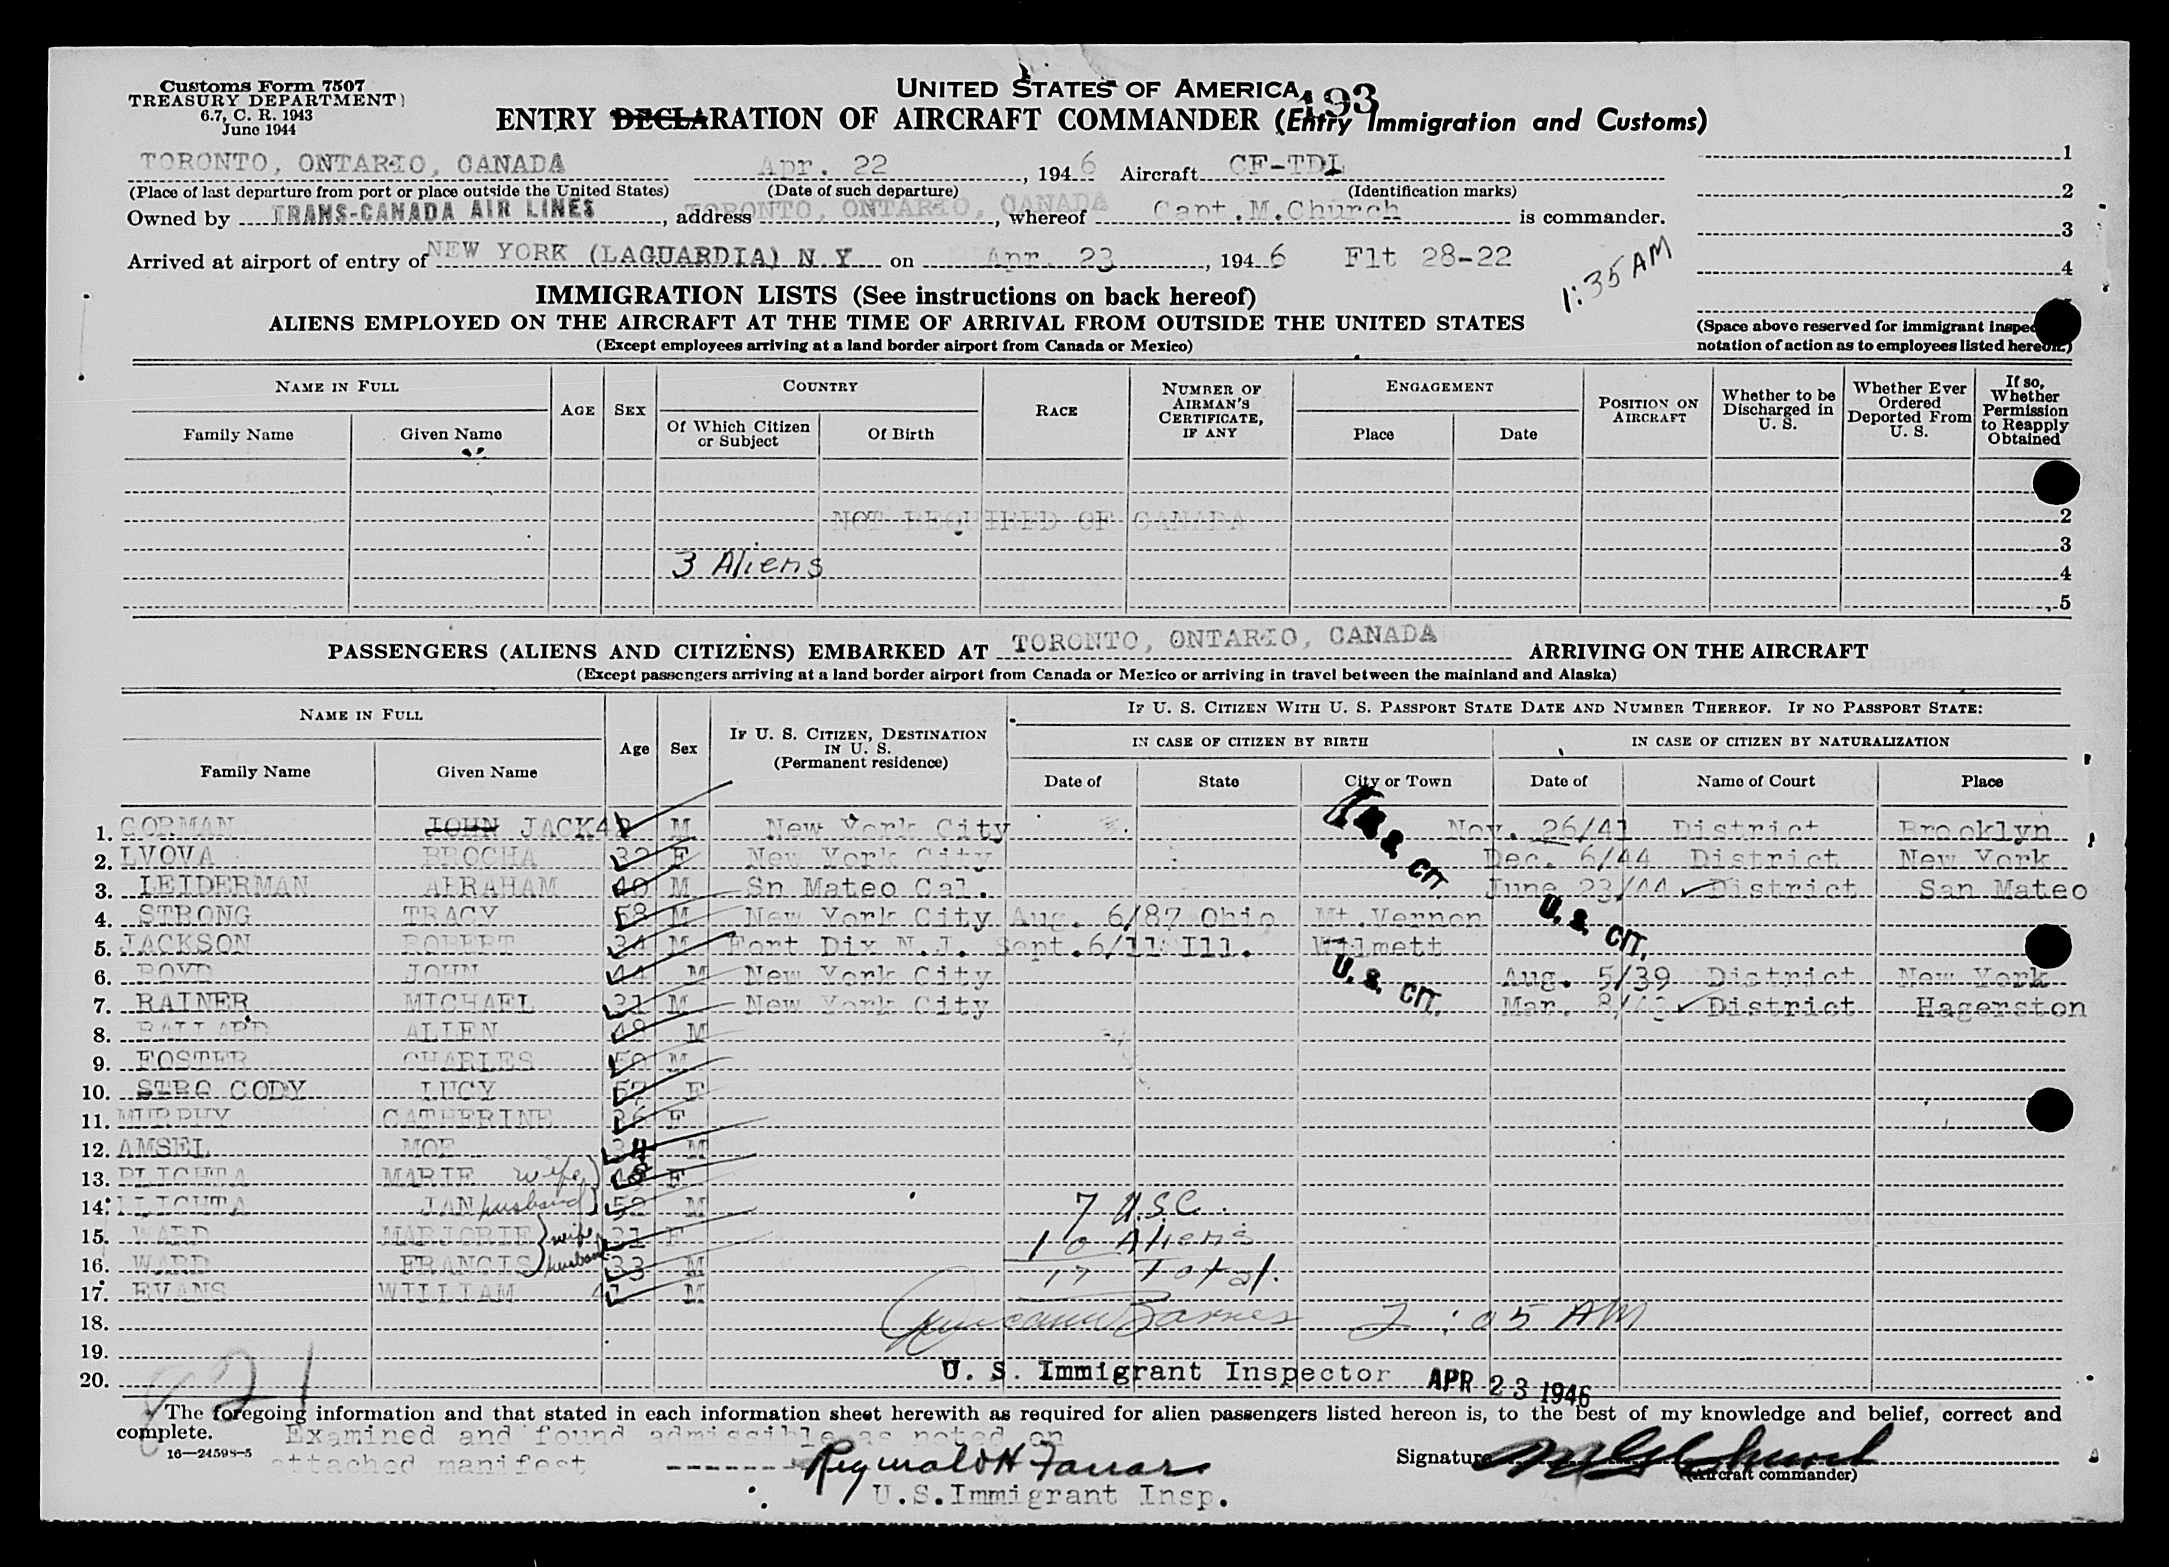 Customs Form 7507
TREASURY DEPARTMENT
6.7, C. R. 1943
June 1944
UNITED STATES OF AMERICA
193
ENTRY DECLARATION OF AIRCRAFT COMMANDER (Entry Immigration and Customs)
TORONTO, ONTARIO, CANADA Apr. 22, 1946 Aircraft CF-TDL
(Place of last departure from port or place outside the United States) (Date of such departure) (Identification marks)
Owned by TRANS-CANADA AIR LINES, address TORONTO, ONTARIO, CANADA, whereof Capt.M.Church is commander.
Arrived at airport of entry of NEW YORK (LAGUARDIA) N Y on Apr. 23, 1946 Flt 28-22
1:35 AM
1
2
3
4
(Space above reserved for immigrant inspec
notation of action as to employees listed hereon.)
IMMIGRATION LISTS (See instructions on back hereof)
ALIENS EMPLOYED ON THE AIRCRAFT AT THE TIME OF ARRIVAL FROM OUTSIDE THE UNITED STATES
(Except employees arriving at a land border airport from Canada or Mexico)
NAME IN FULL
Family Name Given Name
AGE SEX
COUNTRY
Of Which Citizen or Subject Of Birth
RACE
NUMBER OF AIRMAN'S CERTIFICATE, IF ANY
ENGAGEMENT
Place Date
POSITION ON AIRCRAFT
Whether to be Discharged in U. S.
Whether Ever Ordered Deported From U. S.
If so, Whether Permission to Reapply Obtained
NOT REQUIRED OF CANADA 2
3
3 Aliens 4
5
PASSENGERS (ALIENS AND CITIZENS) EMBARKED AT TORONTO, ONTARIO, CANADA ARRIVING ON THE AIRCRAFT
(Except passengers arriving at a land border airport from Canada or Mexico or arriving in travel between the mainland and Alaska)
NAME IN FULL
Family Name Given Name
Age Sex
IF U. S. CITIZEN, DESTINATION IN U. S.
(Permanent residence)
IF U. S. CITIZEN WITH U. S. PASSPORT STATE DATE AND NUMBER THEREOF. IF NO PASSPORT STATE:
IN CASE OF CITIZEN BY BIRTH IN CASE OF CITIZEN BY NATURALIZATION
Date of State City or Town Date of Name of Court Place
1. GORMAN JOHN JACK 42 M New York City Nov. 26/41 District Brooklyn
2. LVOVA BROCHA 32 F New York City Dec. 6/44 District New York
U. S. CIT.
3. LEIDERMAN ABRAHAM 40 M Sn Mateo Cal. June 23/44 District San Mateo
4. STRONG TRACY 58 M New York City Aug. 6/87 Ohio Mt.Vernon
U. S. CIT.
5. JACKSON ROBERT 34 M Fort Dix N.J. Sept.6/11 Ill. Wilmett
6. BOYD JOHN 44 M New York City Aug. 5/39 District New York
U. S. CIT.
7. RAINER MICHAEL 31 M New York City Mar. 8/43 District Hagerston
8. BALLARD ALLEN 48 M
9. FOSTER CHARLES 50 M
10. STRG CODY LUCY 57 F
11. MURPHY CATHERINE 26 F
12. AMSEL MOE 34 M
13. PLICHTA MARIE wife 48 F
14. PLICHTA JAN husband 52 M
7 U.S.C.
15. WARD MARJORIE wife 31 F
10 Aliens
16. WARD FRANCIS husband 33 M
17 total.
17. EVANS WILLIAM M
18. Barnes 2:05 AM
19.
20. U. S. Immigrant Inspector APR 23 1946
821
The foregoing information and that stated in each information sheet herewith as required for alien passengers listed hereon is, to the best of my knowledge and belief, correct and
complete.
16—24598-5
Examined and found admissible as noted on
attached manifest
Reginald H Farrar
U.S.Immigrant Insp.
Signature M G Church
(Aircraft commander)